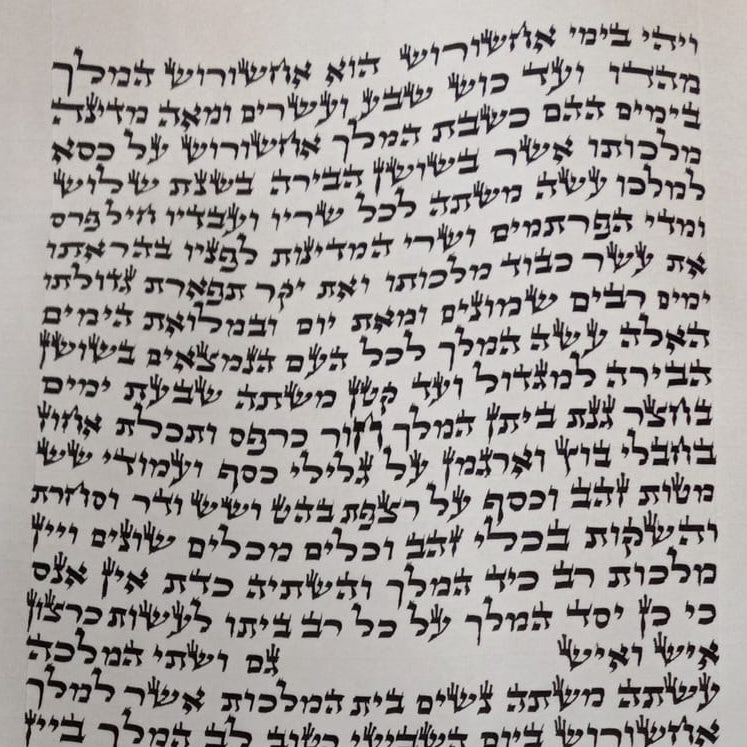 ויהי בימי אחשורוש הוא אחשורוש המלך
מהדו ועד כוש שבע ועשרים ומאה מדינה
בימים ההם כשבת המלך אחשורוש על כסא
מלכותו אשר בשושן הבירה בשנת שלוש
למלכו עשה משתה לכל שריו ועבדיו חיל פרס
ומדי הפרתמים ושרי המדינות לפניו בהראתו
את עשר כבוד מלכותו ואת יקר תפארת גדולתו
ימים רבים שמונים ומאת יום ובמלואת הימים
האלה עשה המלך לכל העם הנמצאים בשושן
הבירה למגדול ועד קטן משתה שבעת ימים
בחצר גנת ביתן המלך חור כרפס ותכלת אחוז
בחבלי בוץ וארגמן על גלילי כסף ועמודי שש
מטות זהב וכסף על רצפת בהט ושש ודר וסחרת
והשקות בכלי זהב וכלים מכלים שונים ויין
מלכות רב כיד המלך והשתיה כדת אין אנס
כי כן יסד המלך על כל רב ביתו לעשות כרצון
איש ואיש גם ושתי המלכה
עשתה משתה נשים בית המלכות אשר למלך
אחשורוש ביום השביעי כטוב לב המלך ביין